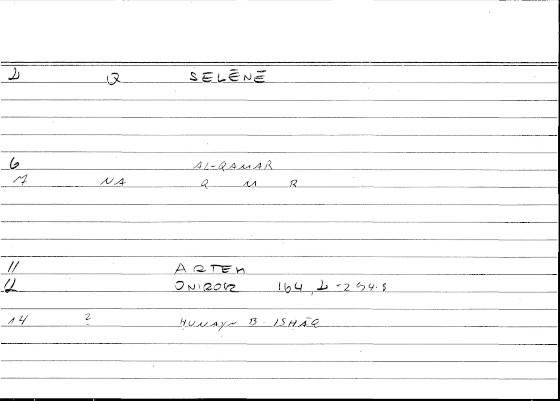 2 Q SELĒNĒ
6 AL-QAMAR
7 NA Q M R
11 ARTEM
12 ONIROK 164, 2-254.8
14 ? HUNAYN B. ISHĀQ